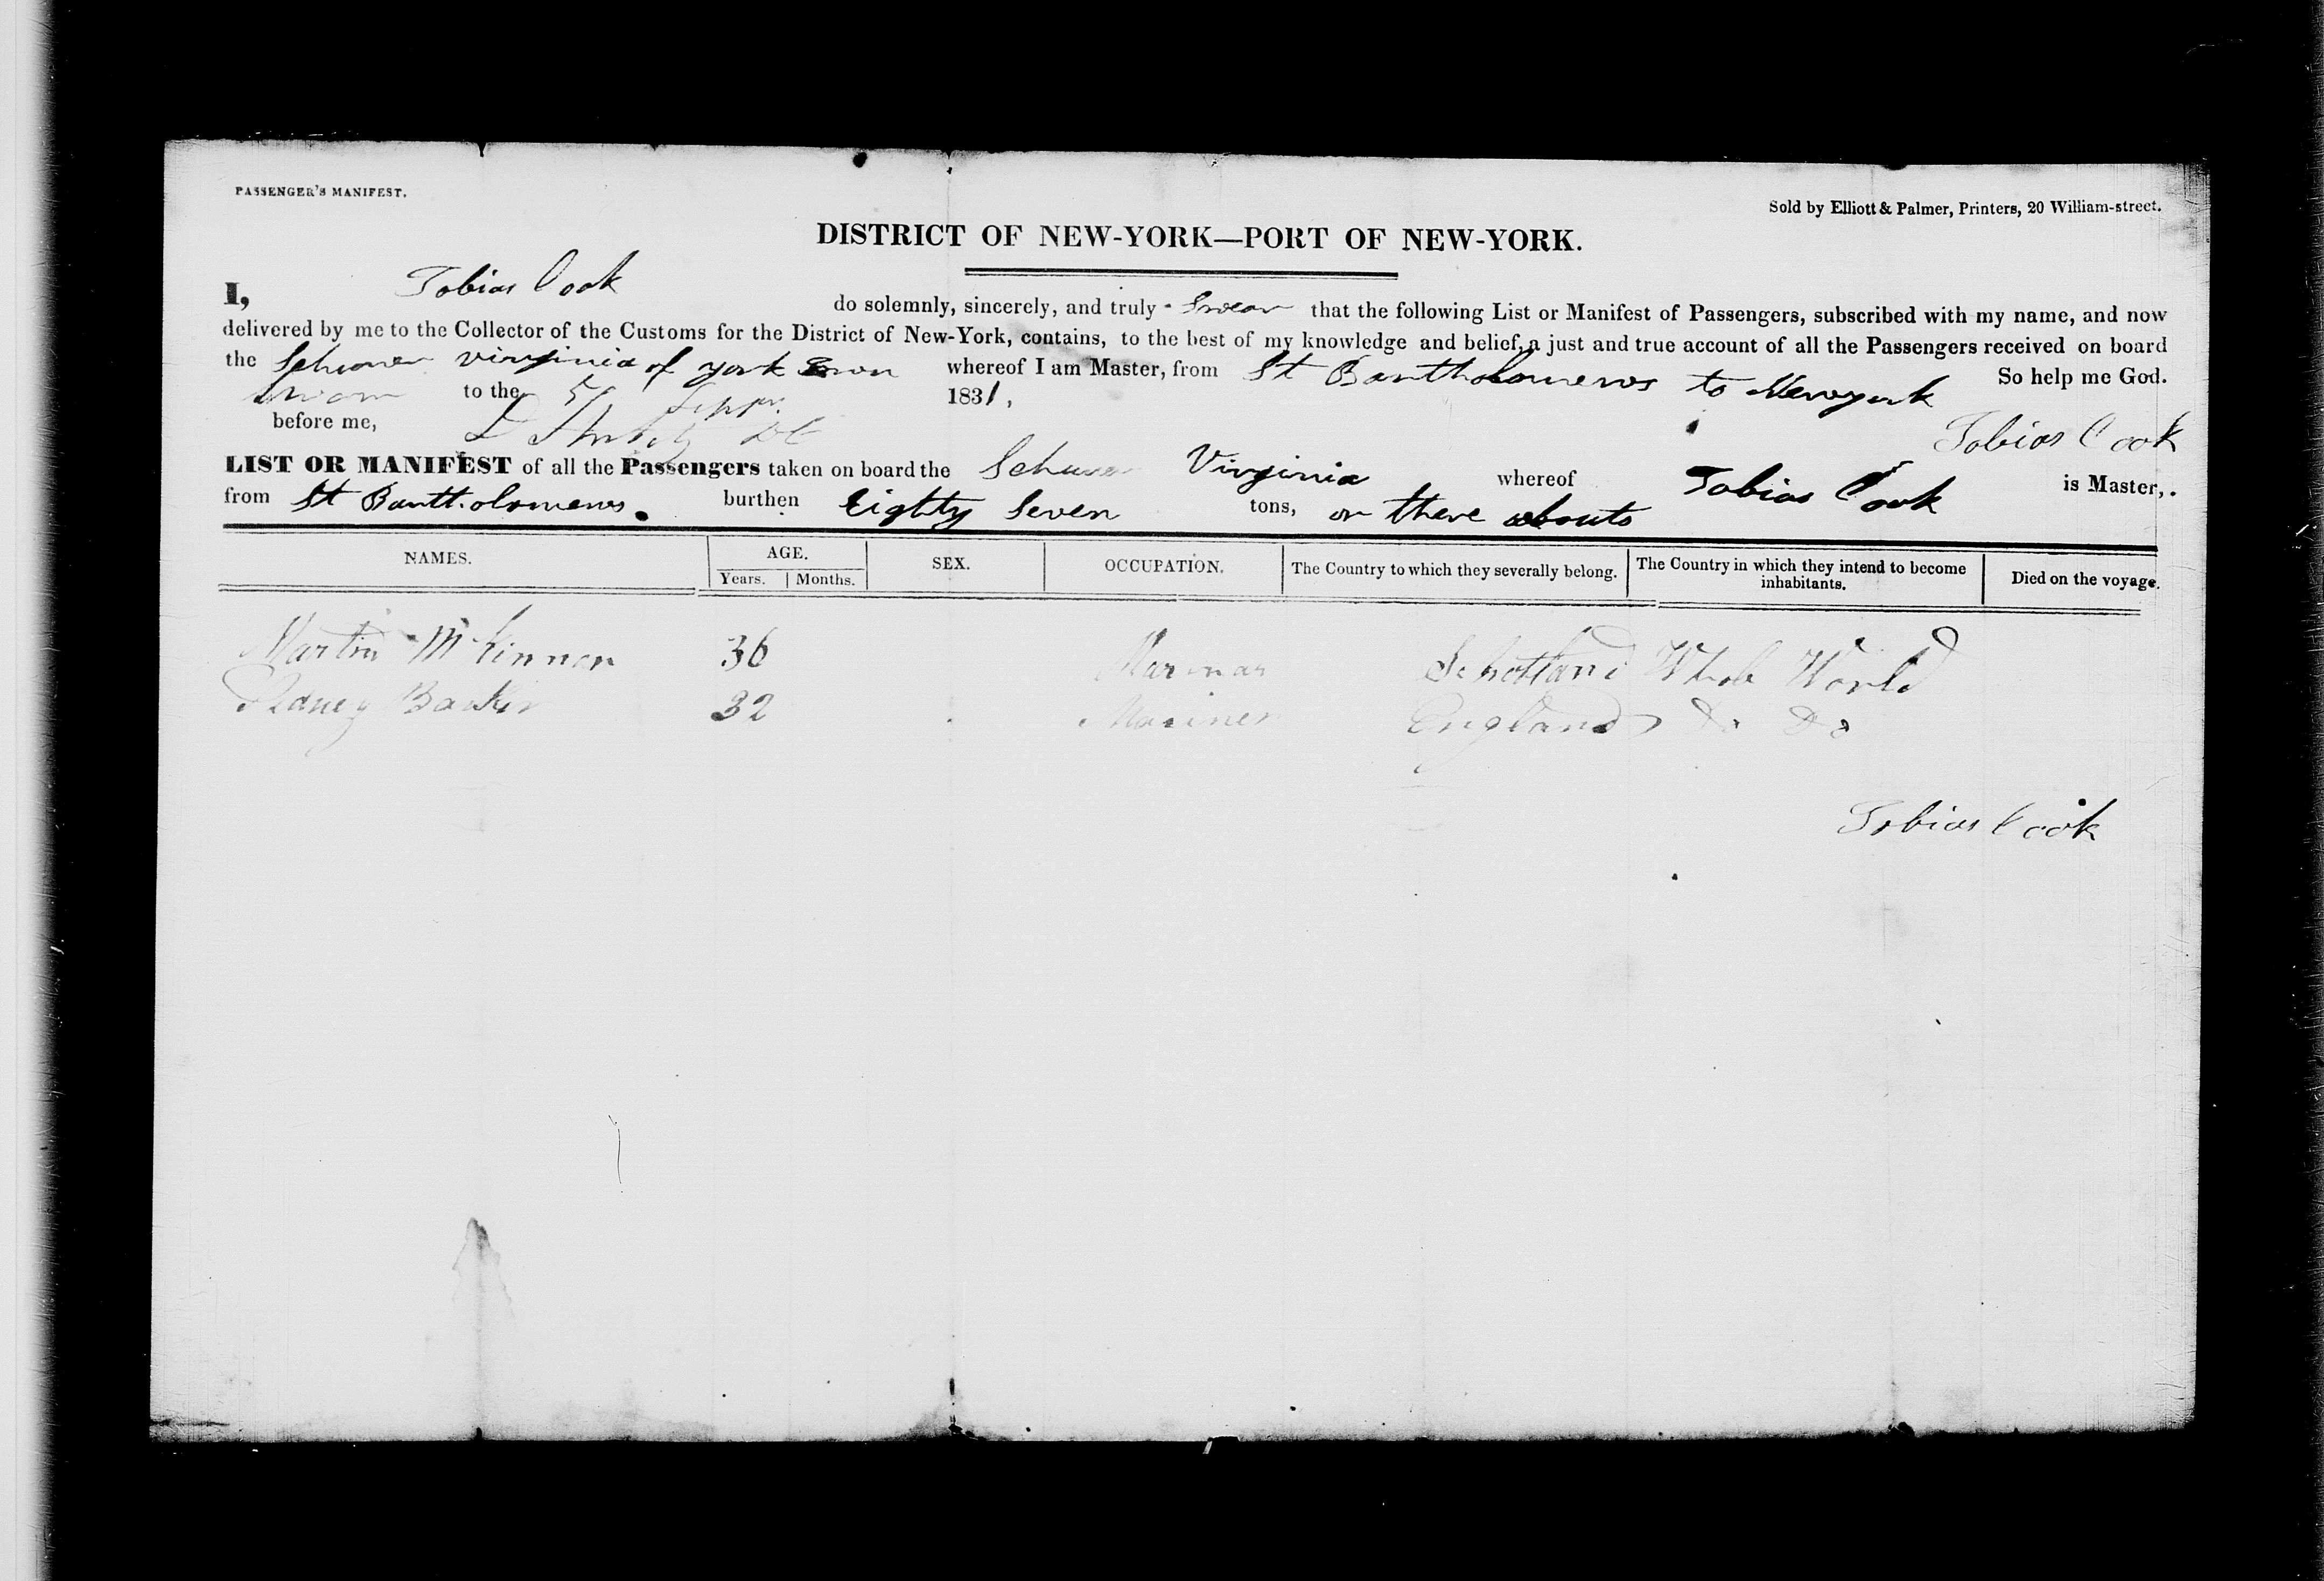 PASSENGER'S MANIFEST.
Sold by Elliott & Palmer, Printers, 20 William-street.
DISTRICT OF NEW-YORK—PORT OF NEW-YORK.
I, Tobias Cook do solemnly, sincerely, and truly Swear that the following List or Manifest of Passengers, subscribed with my name, and now
delivered by me to the Collector of the Customs for the District of New-York, contains, to the best of my knowledge and belief, a just and true account of all the Passengers received on board
the Schuner virginia of york whereof I am Master, from St Bantholomews to Newyork So help me God.
Sworn to the 5 Sepr. 1831,
before me, Tobias Cook
LIST OR MANIFEST of all the Passengers taken on board the Schuner Virginia whereof Tobias Cook is Master,
from St Bantholomews. burthen Eighty Seven tons, or there abouts
NAMES. AGE. SEX. OCCUPATION. The Country to which they severally belong. The Country in which they intend to become inhabitants. Died on the voyage.
Years. Months.
Martin McKinnon 36 Marinar Schotland Whole World
Sidney Barker 32 Mariner England Do Do
Tobias Cook